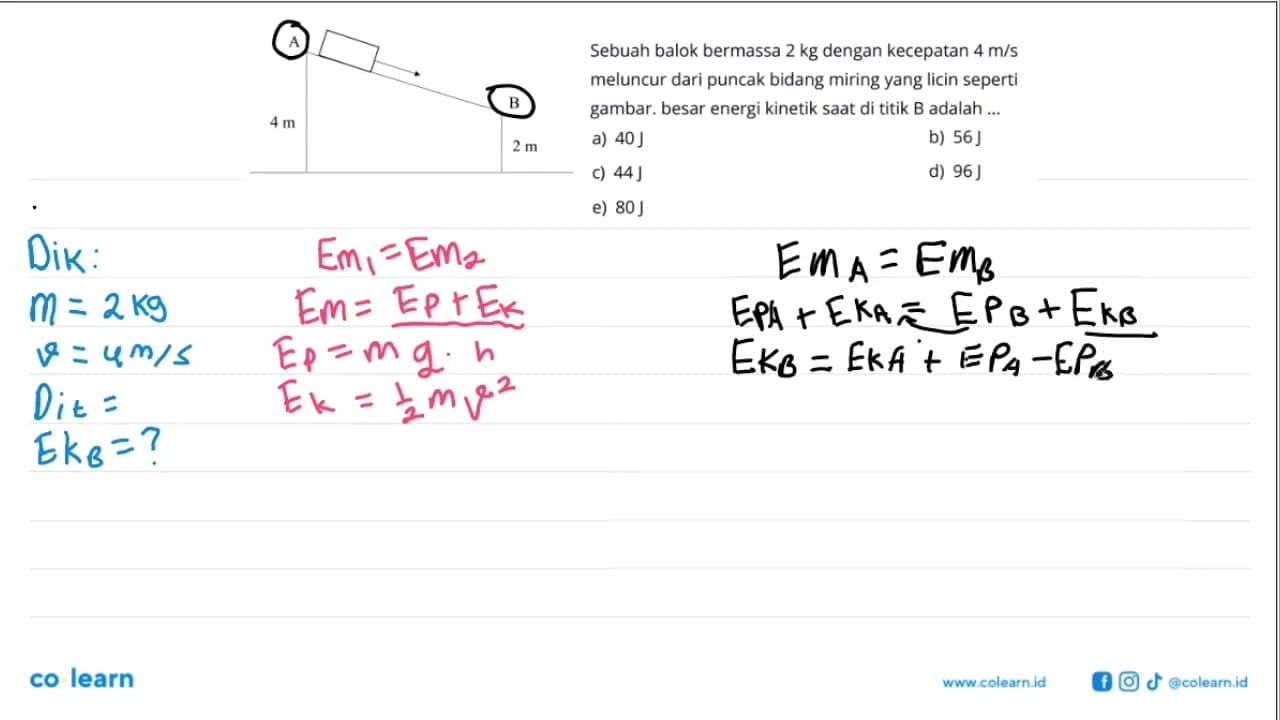 A
B
4 m
2 m
Sebuah balok bermassa 2 kg dengan kecepatan 4 m/s
meluncur dari puncak bidang miring yang licin seperti
gambar. besar energi kinetik saat di titik B adalah ...
a) 40 J
b) 56 J
c) 44 J
d) 96 J
e) 80 J
Dik:
m = 2 kg
v = 4 m/s
Dit =
EkB = ?
Em₁ = Em₂
Em = Ep + Ek
Ep = m g . h
Ek = ½ m v²
EmA = EmB
EPA + EKA = EPB + EkB
EKB = EKA + EPA - EPB
co learn
www.colearn.id
@colearn.id